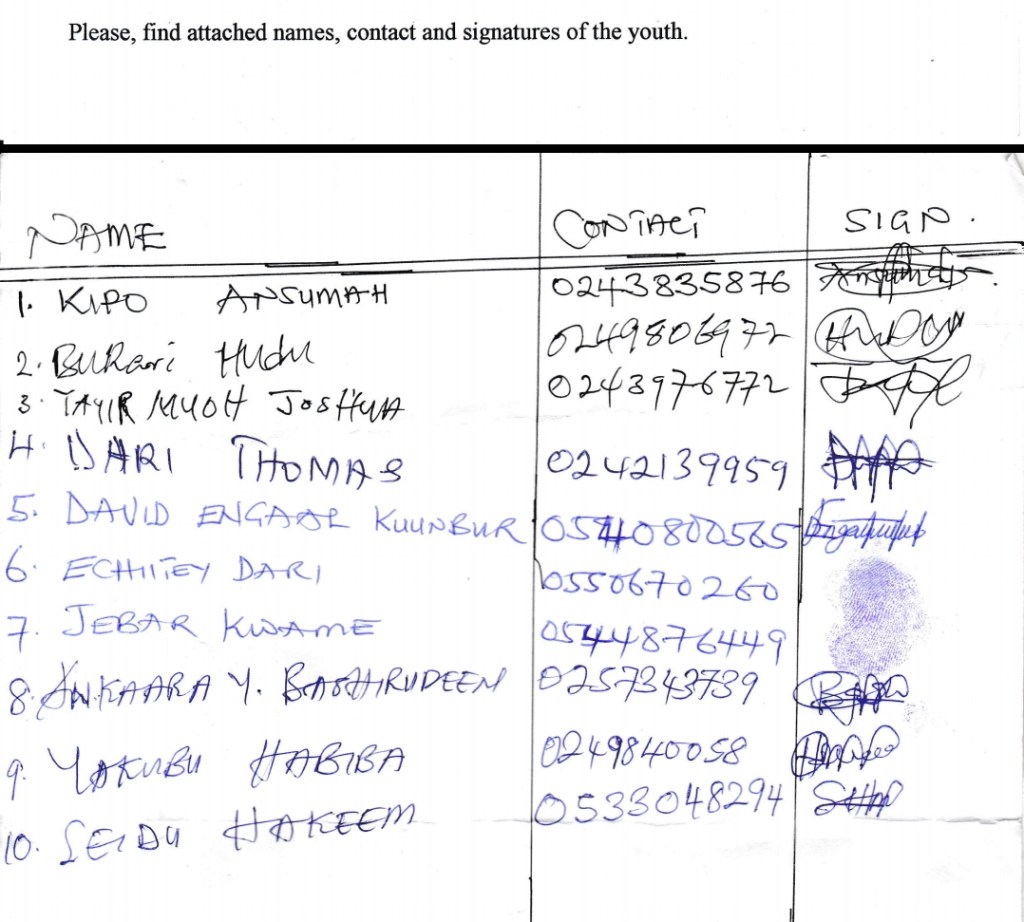 Please, find attached names, contact and signatures of the youth.
NAME CONTACT SIGN.
1. KIPO ANSUMAH 0243835876
2. BUKari HUdu 0249806972 HUDU
3. TAYIR MUOH JOSHUA 0243976772
4. DARI THOMAS 0242139959
5. DAVID ENGAAL KUUNBUR 0540800565
6. ECHITEY DARI 0550670260
7. JEBAR KWAME 0544876449
8. ANKAARA Y. BASHIRUDEEN 0257343739
9. YAKUBU HABIBA 0249840058
10. SEIDU HAKEEM 0533048294